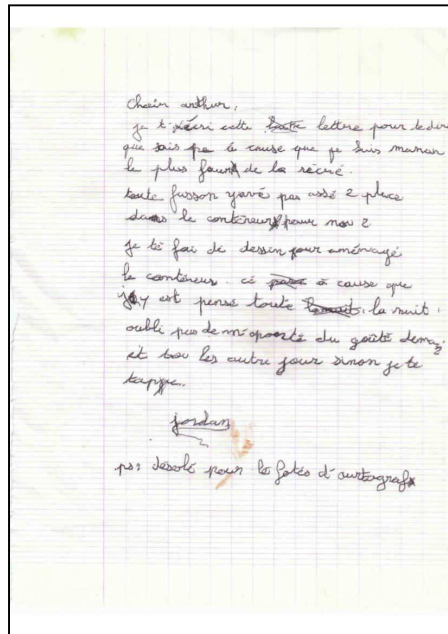 chair arthur,
je t'écri cette lettre pour te dir
que sais pa le cause que je suis
le plus for de la récré.
toute fasson yavé pas assé 2 place
dans le conténeur pour nou 2
je té fai dé dessin pour aménagé
le conténeur. cé à cause que
j'y est pensé toute la nuit.
oubli pas de m'aporté du goûté
et tou les autre jour sinon je te
tappe.
jordan
ps: désolé pour lé fotes d'ortograf